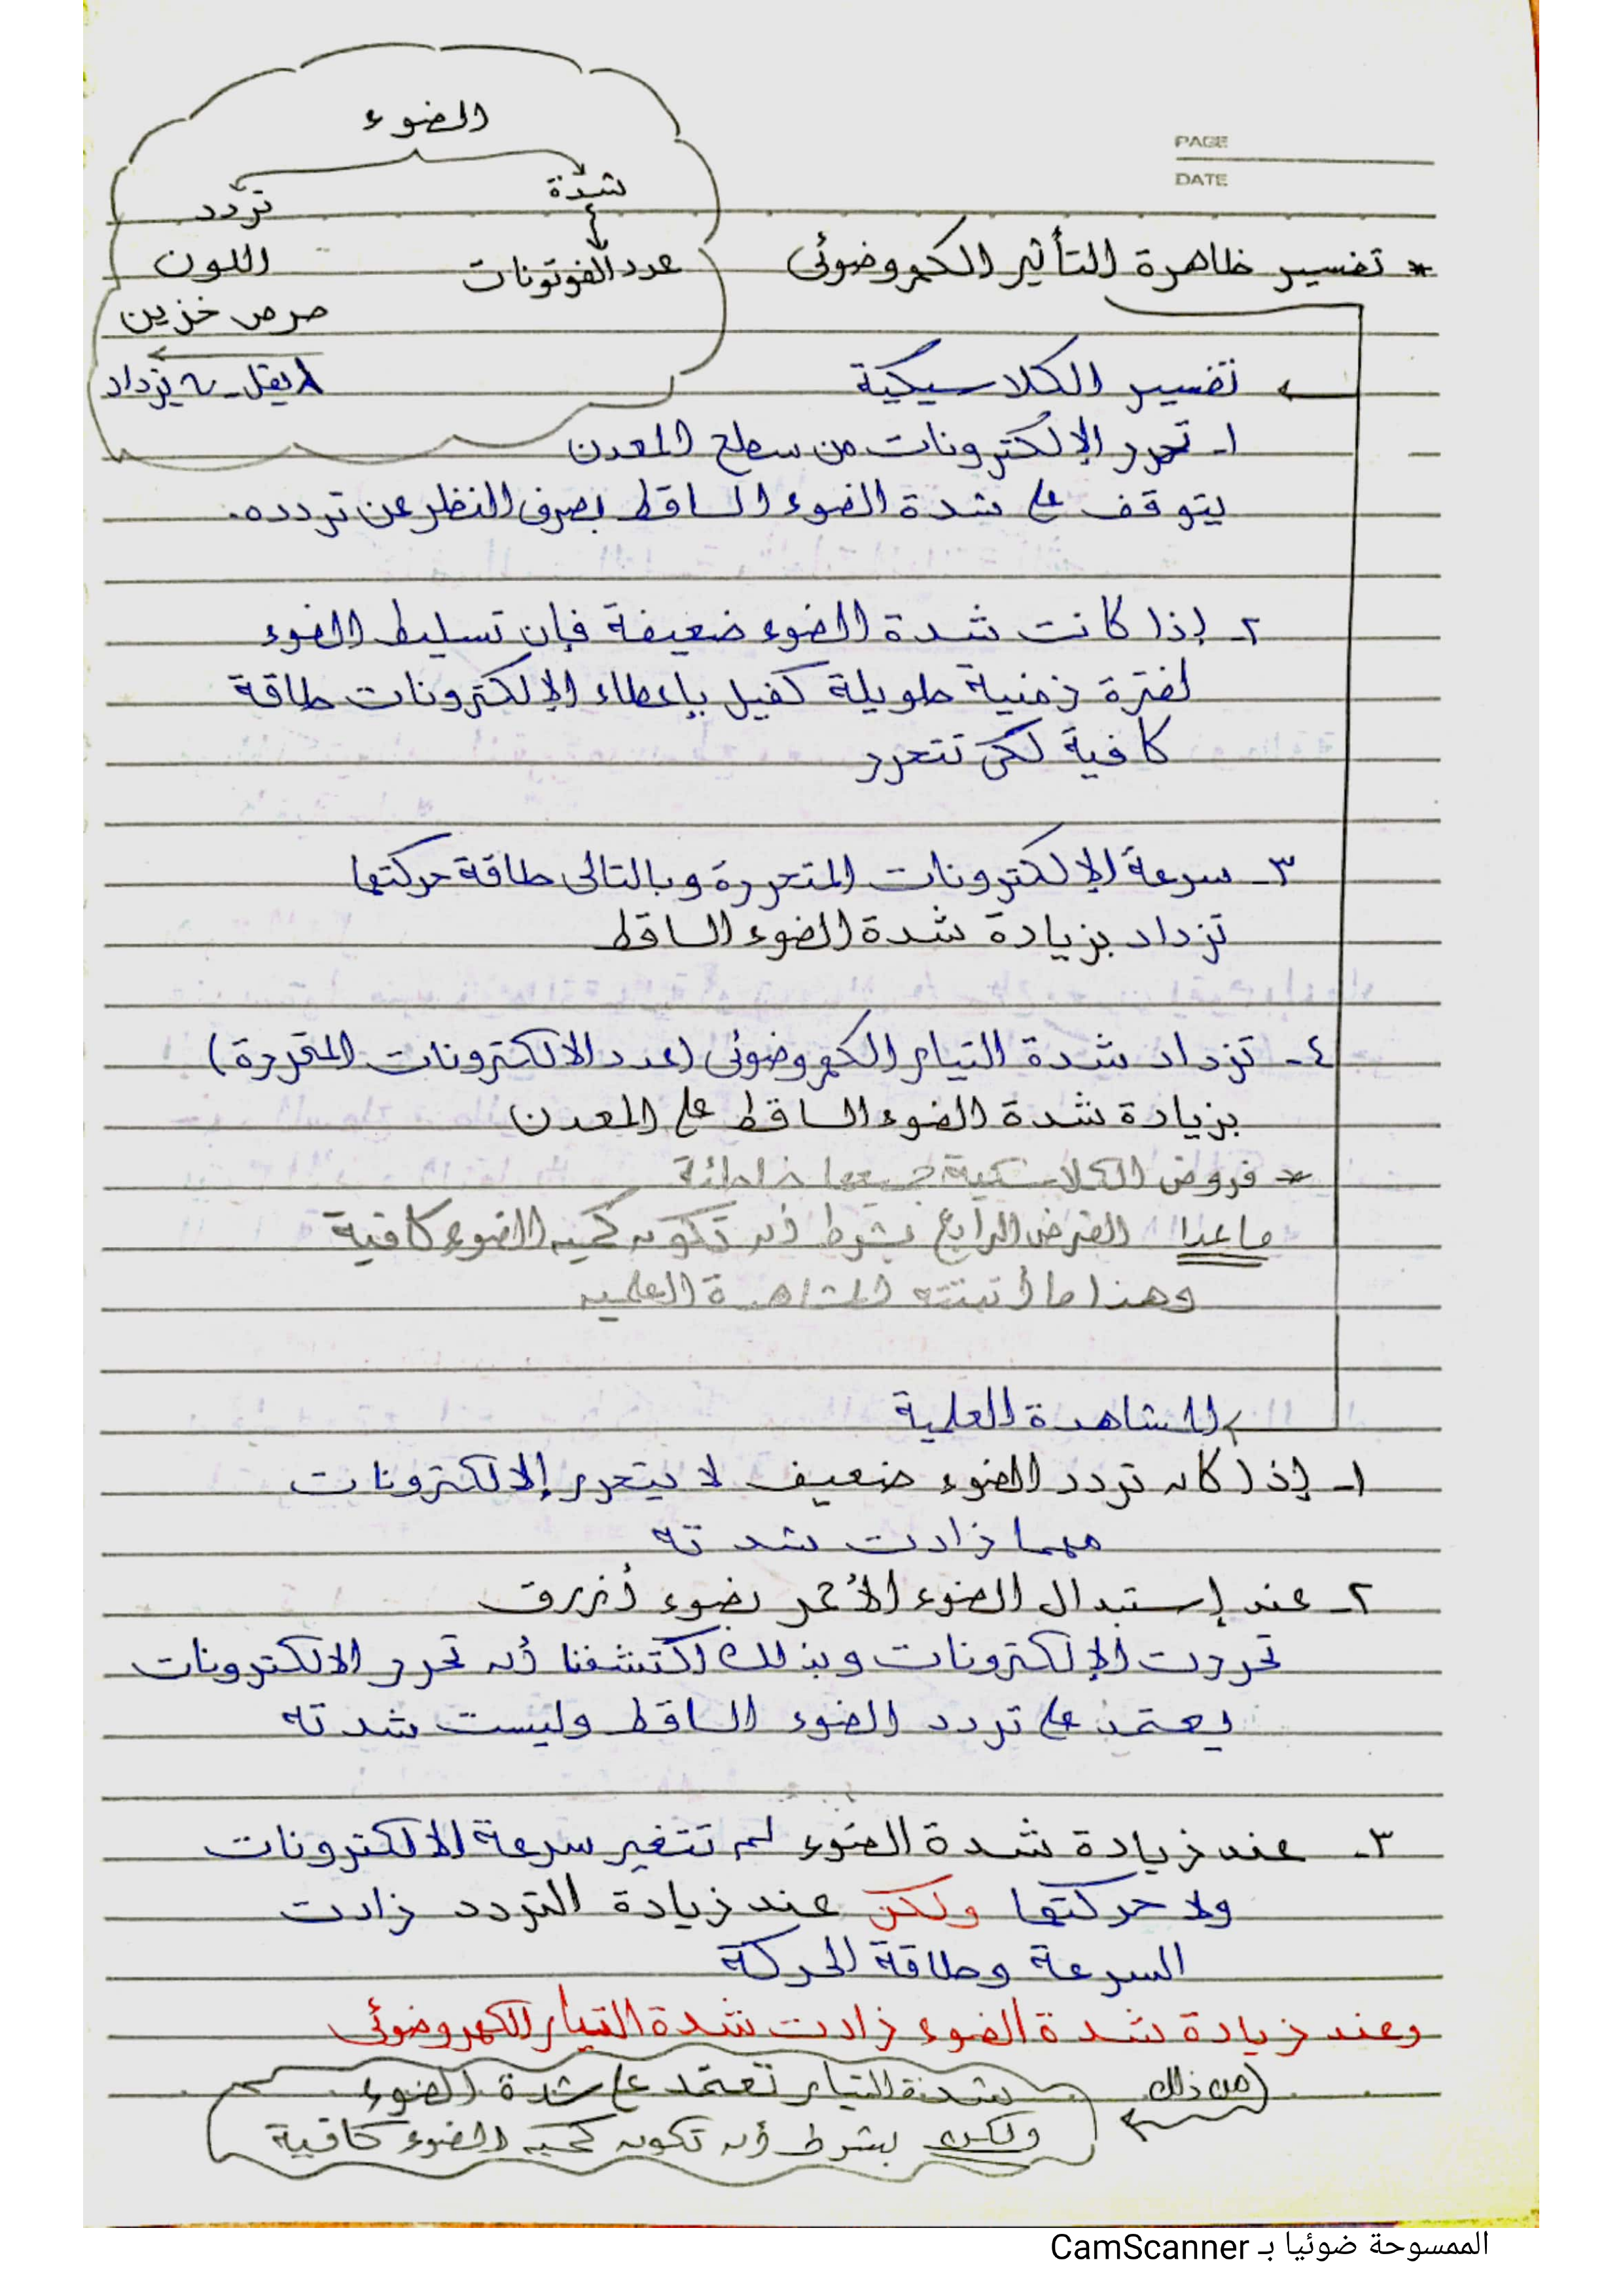 الضوء
شدة
تردد
عدد الفوتونات
اللون
حرص خزين
λ يقل - ν تزداد
PAGE
DATE
* تفسير ظاهرة التأثير الكهروضوئى
تفسير الكلاسيكية
١- تحرر الإلكترونات من سطح المعدن
يتوقف على شدة الضوء الساقط بصرف النظر عن تردده.
٢- إذا كانت شدة الضوء ضعيفة فإن تسليط الضوء
لفترة زمنية طويلة كفيل بإعطاء الإلكترونات طاقة
كافية لكى تتحرر
٣- سرعة الإلكترونات المتحررة وبالتالى طاقة حركتها
تزداد بزيادة شدة الضوء الساقط
٤- تزداد شدة التيار الكهروضوئى (عدد الالكترونات المتحررة)
بزيادة شدة الضوء الساقط على المعدن
* فروض الكلاسيكية جميعها خاطئة
ماعدا الفرض الرابع بشرط أن تكون كمية الضوء كافية
وهذا ما أتبتته المشاهدة العلمية
المشاهدة العلمية
١- إذا كان تردد الضوء ضعيف لا يتحرر إلالكترونات
مهما زادت شدته
٢- عند إستبدال الضوء الأحمر بضوء أزرق
تحررت الإلكترونات وبذلك اكتشفنا أن تحرر الالكترونات
يعتمد على تردد الضوء الساقط وليست شدته
٣- عند زيادة شدة الضوء لم تتغير سرعة الالكترونات
ولا حركتها ولكن عند زيادة التردد زادت
السرعة وطاقة الحركة
وعند زيادة شدة الضوء زادت شدة التيار الكهروضوئى
(من ذلك
شدة التيار تعتمد على شدة الضوء
ولكن بشرط أن تكون كمية الضوء كافية
الممسوحة ضوئيا بـ CamScanner